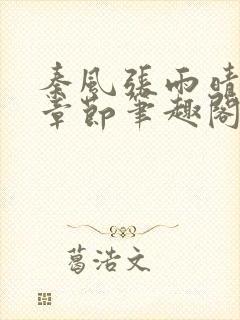 秦風張雨晴
章節筆趣閣
葛浩文